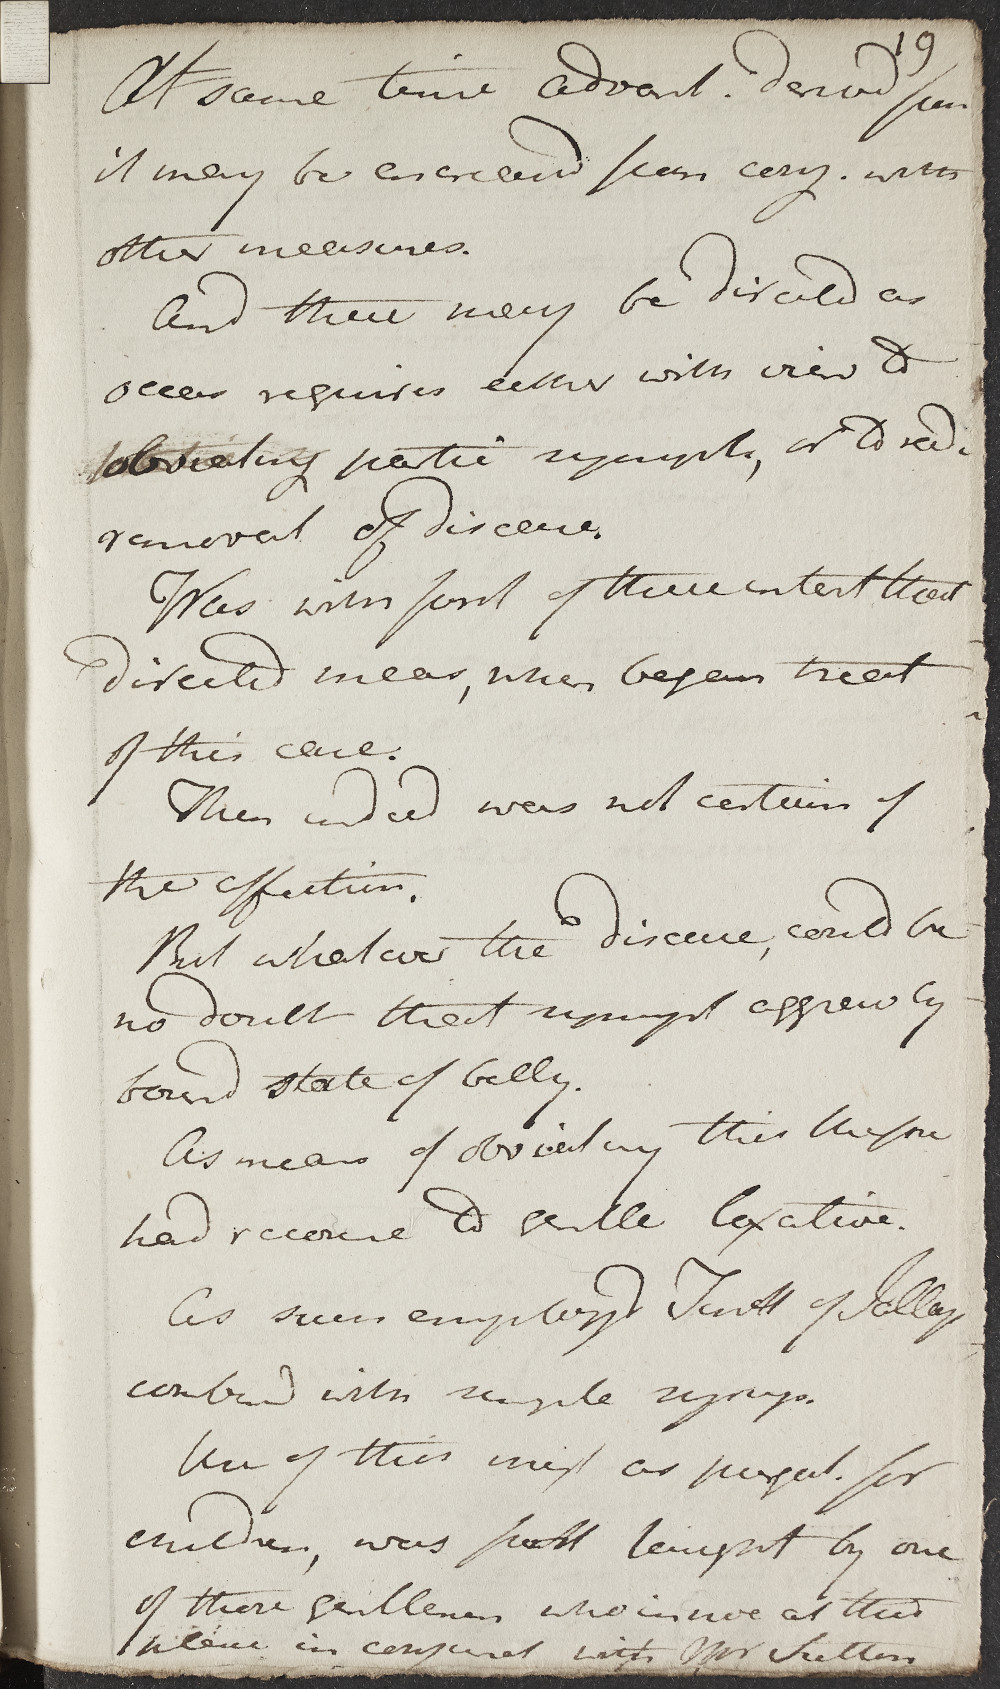 19
At same time advant. derived from
it may be encreasd from conj. with
other measures.
And these may be directed as
occas requires either with view to
obviating partic sympt, or to rad.
removal of disease.
Was with first of these intent that
directed meas, when began treat
of this case.
Then indeed was not certain of
the affection.
But whatever the disease, could be
no doubt that sympt aggrav by
bound state of belly.
As means of obviating this therefore
had recourse to gentle laxative.
As such employd Tinct of Jallap
combind with simple syrup.
Use of this mixt as purgat. for
children, was first taught by one
of those gentlemen who innoc at this
place in conjunct with Mr Sutton